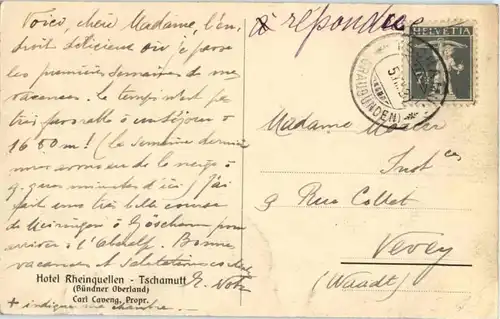 Voici, chère Madame, l'en,
droit délicieux où je passe
les premières semaines de mes
vacances. Le temps n'est pas
très favorable à un séjour à
1650 m! (La semaine dernière
nous avons eu de la neige à
q. ques minutes d'ici) J'ai
fait une très belle course
de Meiringen à Göschenen pour
arriver à l'Oberalp. Bonnes
vacances et salutations
Hotel Rheinquellen - Tschamutt
(Bündner Oberland)
Carl Caveng, Propr.
+ indique ma chambre
à répondre
HELVETIA
(GRAUBÜNDEN)
Madame
Inst ces
9 Rue Collet
Vevey
(Waadt)